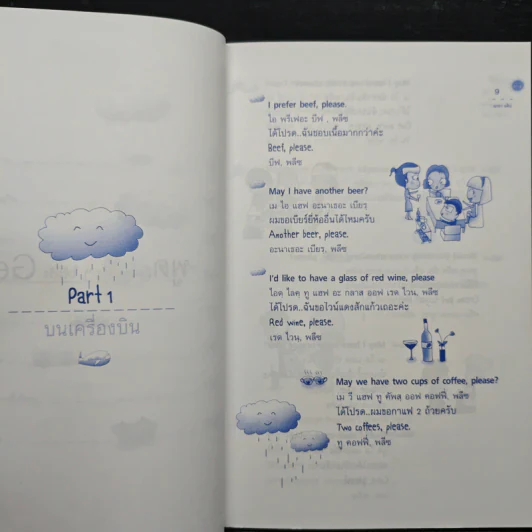 Part 1
บนเครื่องบิน
9
I prefer beef, please.
ไอ พรีเฟอะ บีฟ , พลีซ
ได้โปรด..ฉันชอบเนื้อมากกว่าค่ะ
Beef, please.
บีฟ, พลีซ
May I have another beer?
เม ไอ แฮฟ อะนาเธอะ เบียรฺ
ผมขอเบียร์ยี่ห้ออื่นได้ไหมครับ
Another beer, please.
อะนาเธอะ เบียรฺ, พลีซ
I'd like to have a glass of red wine, please
ไอดฺ ไลคฺ ทู แฮฟ อะ กลาส ออฟ เรด ไวน, พลีซ
ได้โปรด..ฉันขอไวน์แดงสักแก้วเถอะค่ะ
Red wine, please.
เรด ไวน, พลีซ
May we have two cups of coffee, please?
เม วี แฮฟ ทู คัพสฺ ออฟ คอฟฟี่, พลีซ
ได้โปรด..ผมขอกาแฟ 2 ถ้วยครับ
Two coffees, please.
ทู คอฟฟี่, พลีซ